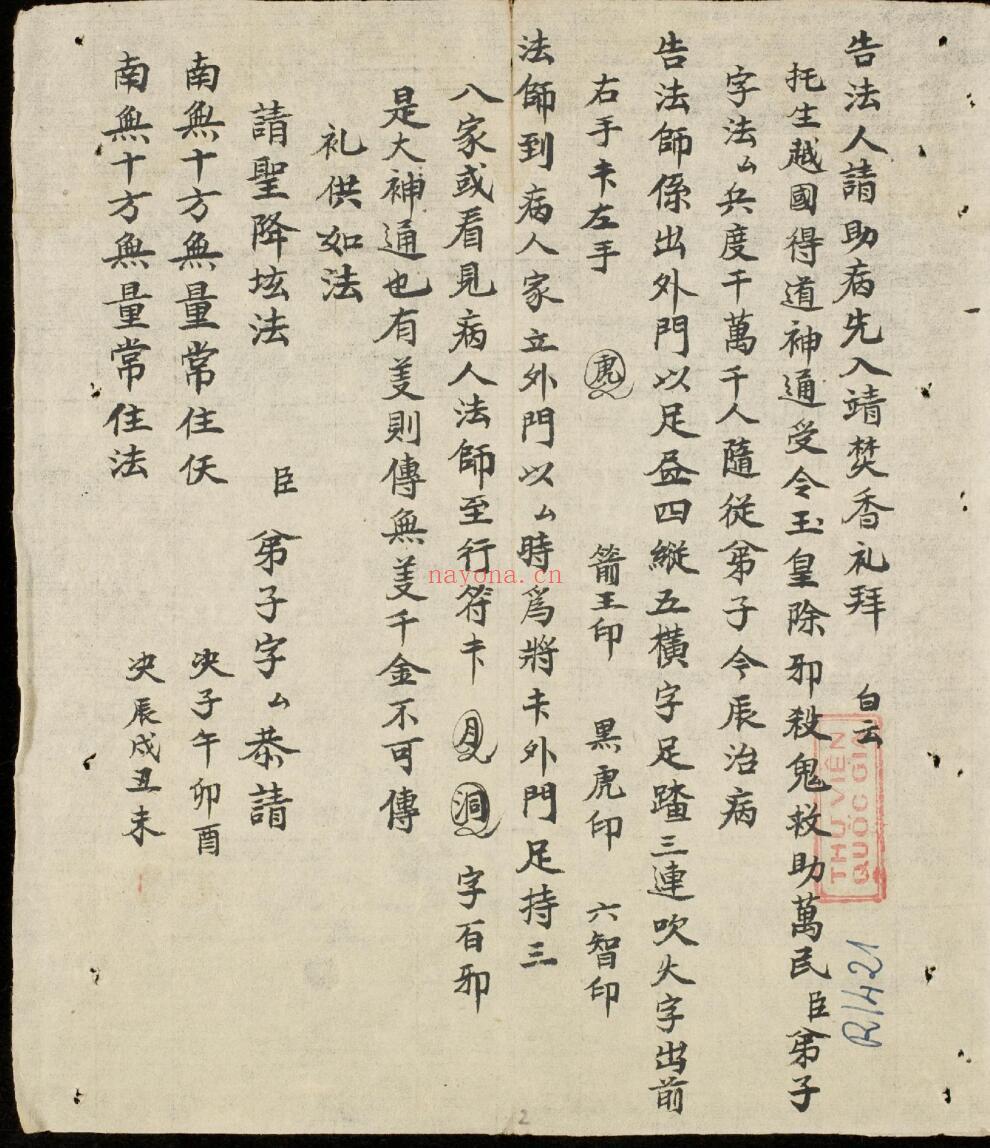 告法人請助病先入靖焚香礼拜 白云
托生越國得道神通受令玉皇除邪殺鬼救助萬民臣弟子
字法厶兵度千萬千人隨從弟子令辰治病
告法師係出外門以足 四縱五橫字足踏三連吹火字出前
右手卞左手 虎 箭王印 黑虎印 六智印
法師到病人家立外門以厶時爲將卞外門足持三
八家或看見病人法師至行符卞 洞 字百邪
是大神通也有 則傳無 千金不可傳
礼供如法
請聖降坛法 臣弟子字厶恭請
南無十方無量常住仸 决子午卯酉
南無十方無量常住法 决辰戌丑未
THƯ VIỆN
QUỐC GIA
R1421
nayona.cn
2